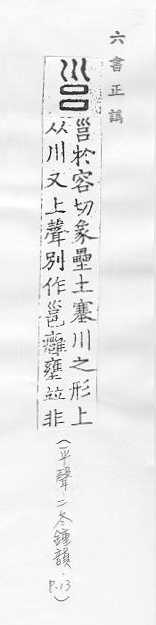 六書正譌
於容切象壘土塞川之形上
从川又上聲別作邕壅竝非
(平聲二冬鍾韻 P.13)